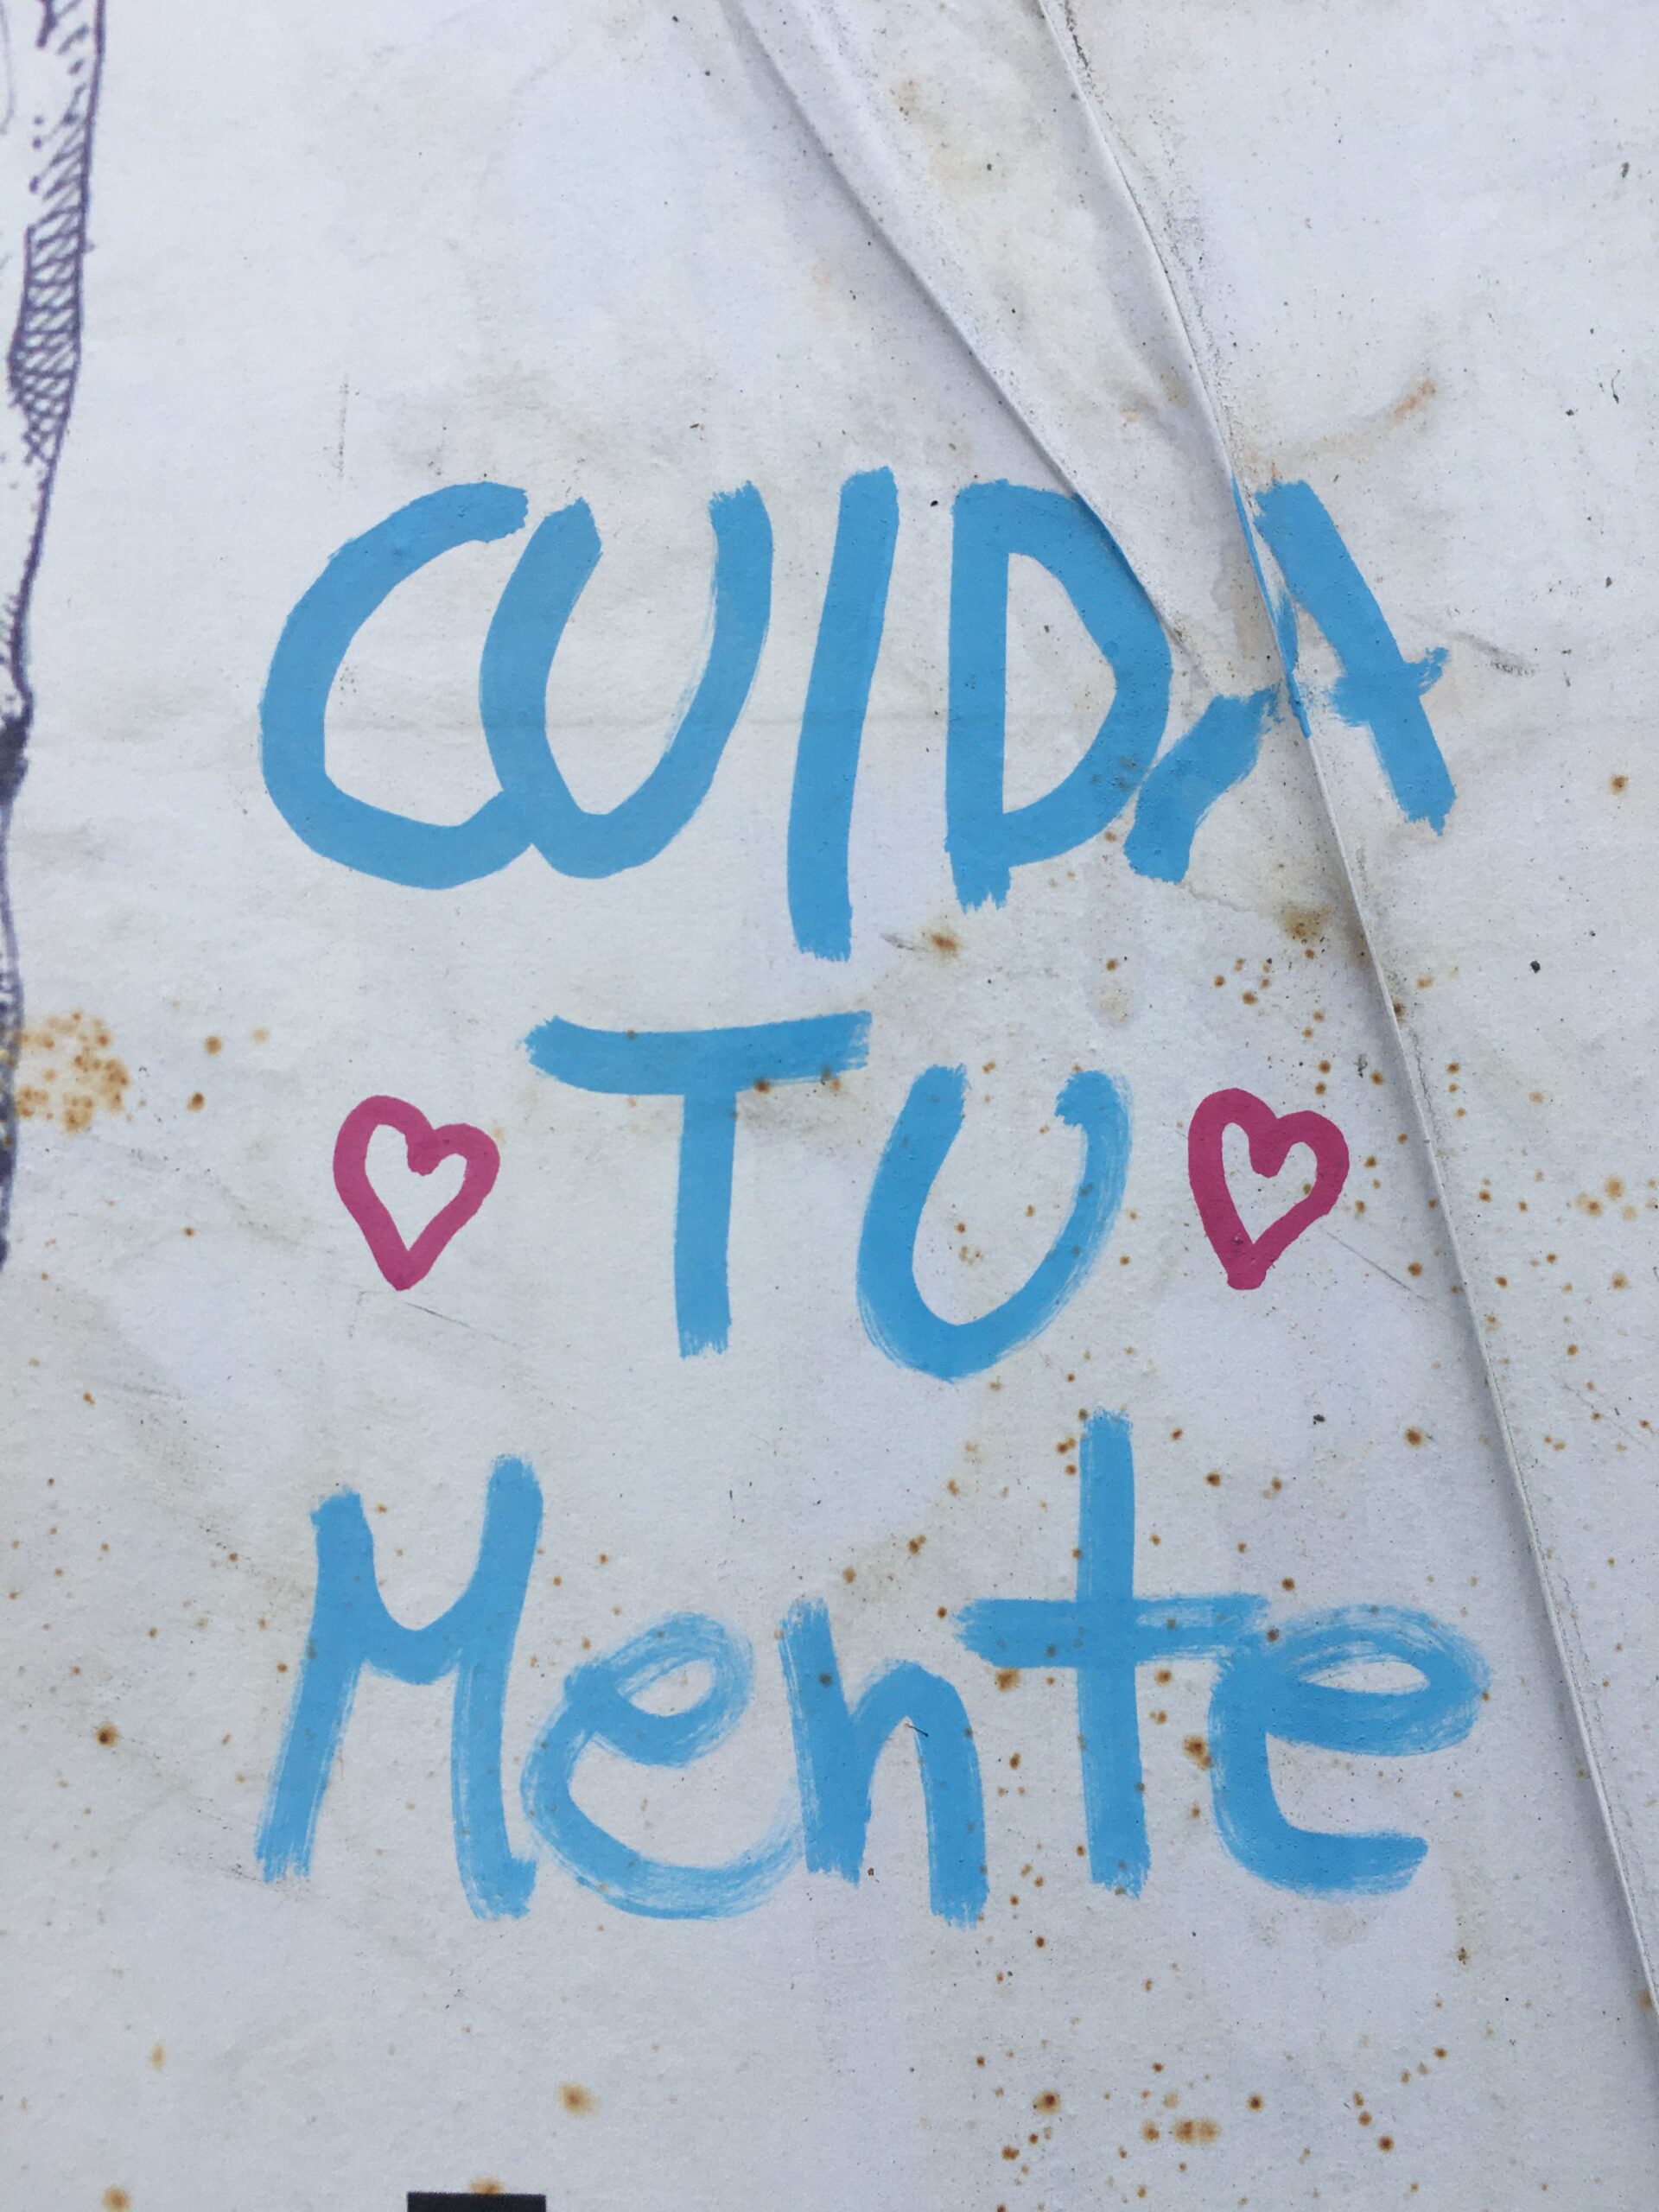 CUIDA
TU
Mente